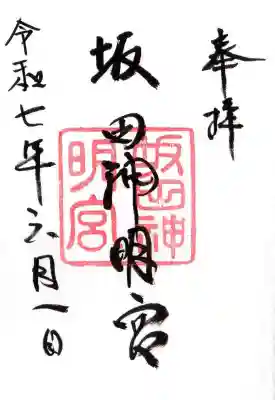 奉拝
坂田神明宮
坂田神
明宮
令和七年六月一日